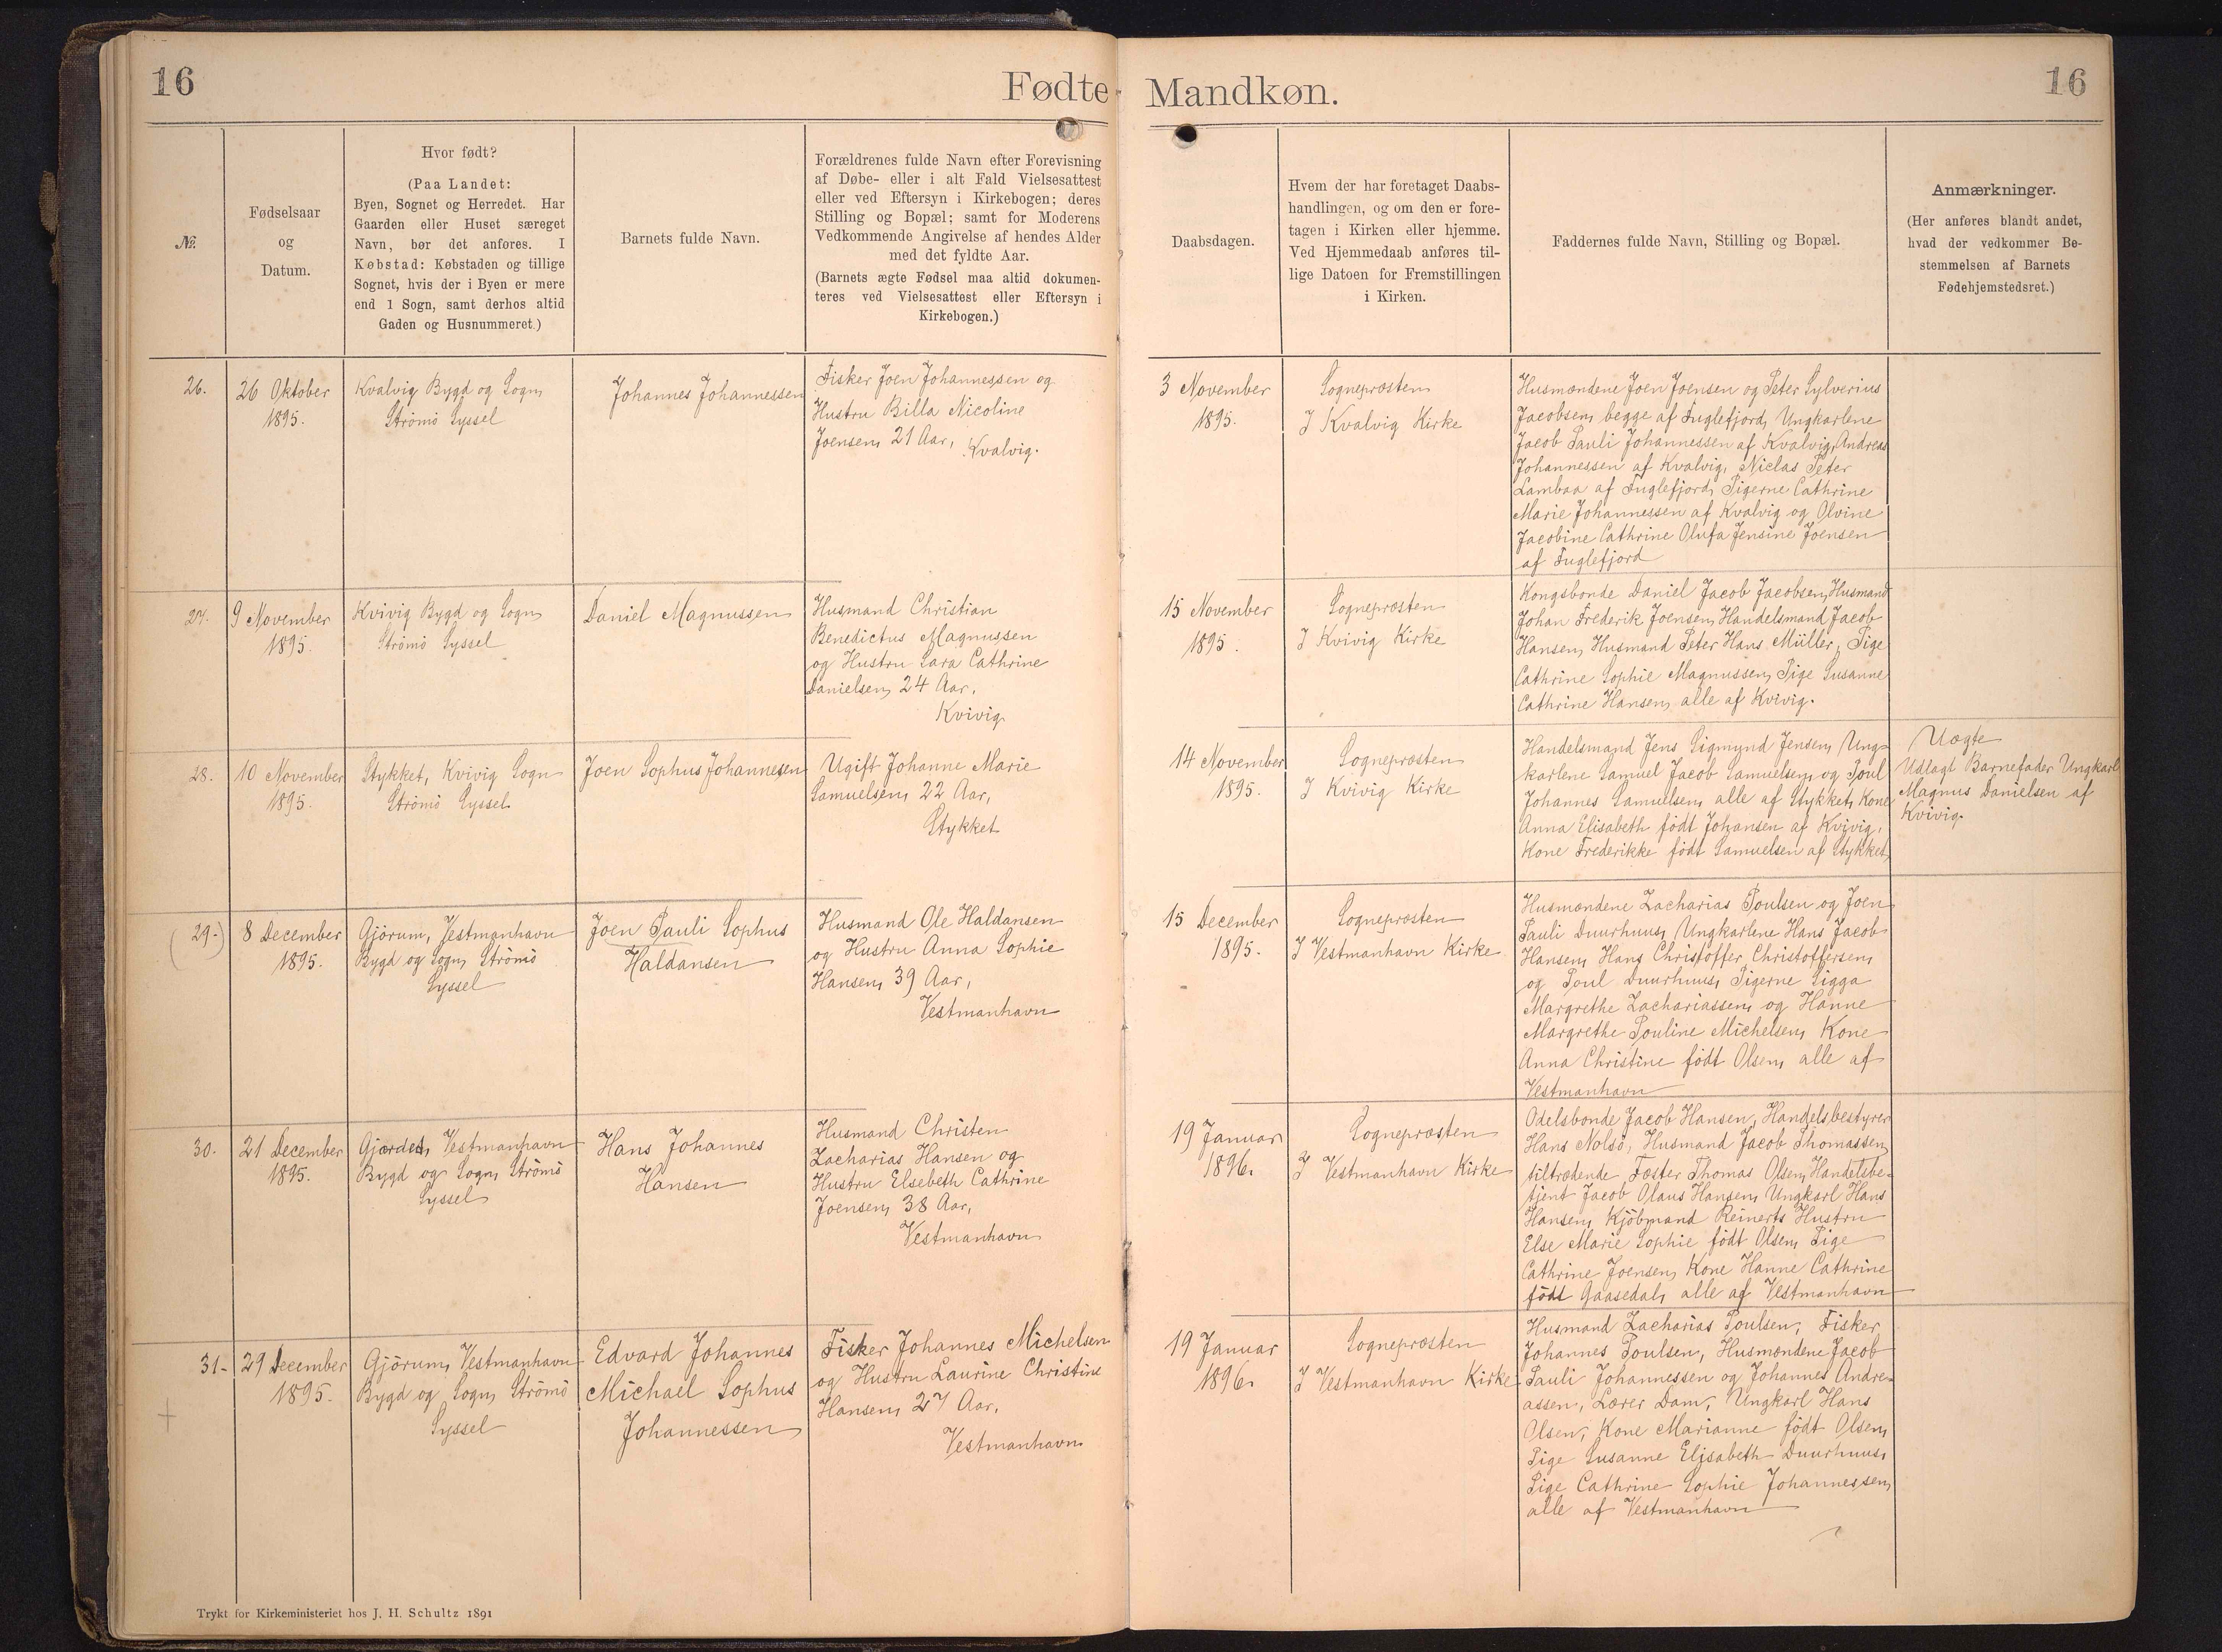 16
Fødte
Mandkøn.
16
№.
Fødselsaar
og
Datum.
Hvor født?
(Paa Landet:
Byen, Sognet og Herredet. Har
Gaarden eller Huset særeget
Navn, bør det anføres. I
Købstad: Købstaden og tillige
Sognet, hvis der i Byen er mere
end 1 Sogn, samt derhos altid
Gaden og Husnummeret.)
Barnets fulde Navn.
Forældrenes fulde Navn efter Forevisning
af Døbe- eller i alt Fald Vielsesattest
eller ved Eftersyn i Kirkebogen; deres
Stilling og Bopæl; samt for Moderens
Vedkommende Angivelse af hendes Alder
med det fyldte Aar.
(Barnets ægte Fødsel maa altid dokumen-
teres ved Vielsesattest eller Eftersyn i
Kirkebogen.)
Daabsdagen.
Hvem der har foretaget Daabs-
handlingen, og om den er fore-
tagen i Kirken eller hjemme.
Ved Hjemmedaab anføres til-
lige Datoen for Fremstillingen
i Kirken.
Faddernes fulde Navn, Stilling og Bopæl.
Anmærkninger.
(Her anføres blandt andet,
hvad der vedkommer Be-
stemmelsen af Barnets
Fødehjemstedsret.)
26.
26 Oktober
1895.
Kvalvig Bygd og Sogn,
Strömö Syssel
Johannes Johannessen
Fisker Joen Johannessen og
Hustru Billa Nicoline
Joensen, 21 Aar, Kvalvig.
3 November
1895.
Sogneprœsten
I Kvalvig Kirke
Husmœndene Joen Joensen og Peter Sylverius
Jacobsen, begge af Fuglefjord, Ungkarlene
Jacob Pauli Johannessen af Kvalvig, Andreas
Johannessen af Kvalvig, Niclas Peter
Lambaa af Fuglefjord, Pigerne Cathrine
Marie Johannessen af Kvalvig og Olvine
Jacobine Cathrine Olufa Jensine Joensen
af Fuglefjord
27.
9 November
1895.
Kvivig Bygd og Sogn,
Strömö Syssel
Daniel Magnussen
Husmand Christian
Benedictus Magnussen
og Hustru Sara Cathrine
Danielsen, 24 Aar,
Kvivig
15 November
1895.
Sogneprœsten
I Kvivig Kirke
Kongsbonde Daniel Jacob Jacobsen, Husmand
Johan Frederik Joensen, Handelsmand Jacob
Hansen, Husmand Peter Hans Müller, Pige
Cathrine Sophie Magnussen, Pige Susanne
Cathrine Hansen, alle af Kvivig.
28.
10 November
1895.
Stykket, Kvivig Sogn
Strömö Syssel
Joen Sophus Johannesen
Ugift Johanne Marie
Samuelsen, 22 Aar,
Stykket
14 November
1895.
Sogneprœsten
I Kvivig Kirke
Handelsmand Jens Sigmund Jensen, Ung-
karlene Samuel Jacob Samuelsen, og Poul
Johannes Samuelsen, alle af Stykket, Kone
Anna Elisabeth födt Johansen af Kvivig,
Kone Frederikke födt Samuelsen af Stykket,
Uœgte
Udlagt Barnefader Ungkarl
Magnus Danielsen af
Kvivig.
29.
8 December
1895.
Gjörum, Vestmanhavn
Bygd og Sogn, Strömö
Syssel
Joen Pauli Sophus
Haldansen
Husmand Ole Haldansen
og Hustru Anna Sophie
Hansen, 39 Aar,
Vestmanhavn
15 December
1895.
Sogneprœsten
I Vestmanhavn Kirke
Husmœndene Zacharias Poulsen og Joen
Pauli Duurhuus, Ungkarlene Hans Jacob
Hansen, Hans Christoffer Christoffersen,
og Poul Duurhuus, Pigerne Sigga
Margrethe Zachariassen, og Hanne
Margrethe Pouline Michelsen, Kone
Anna Christine födt Olsen, alle af
Vestmanhavn
30.
21 December
1895.
Gjœrdet, Vestmanhavn
Bygd og Sogn, Strömö
Syssel
Hans Johannes
Hansen
Husmand Christen
Zacharias Hansen og
Hustru Elsebeth Cathrine
Joensen, 38 Aar,
Vestmanhavn
19 Januar
1896.
Sogneprœsten
I Vestmanhavn Kirke
Odelsbonde Jacob Hansen, Handelsbestyrer
Hans Nolsö, Husmand Jacob Thomassen,
tiltrœdende Fœster Thomas Olsen, Handelsbe-
tjent Jacob Olaus Hansen, Ungkarl Hans
Hansen, Kjöbmand Reinerts Hustru
Else Marie Sophie födt Olsen, Pige
Cathrine Joensen, Kone Hanne Cathrine
födt Gaasedal, alle af Vestmanhavn
31.
29 December
1895.
Gjörum, Vestmanhavn
Bygd og Sogn, Strömö
Syssel
Edvard Johannes
Michael Sophus
Johannessen
Fisker Johannes Michelsen
og Hustru Laurine Christine
Hansen, 27 Aar,
Vestmanhavn
19 Januar
1896.
Sogneprœsten
I Vestmanhavn Kirke
Husmand Zacharias Poulsen, Fisker
Johannes Poulsen, Husmœndene Jacob
Pauli Johannessen og Johannes Andre-
assen, Lœrer Dam, Ungkarl Hans
Olsen, Kone Marianne födt Olsen,
Pige Susanne Elisabeth Duurhuus,
Pige Cathrine Sophie Johannessen,
alle af Vestmanhavn
Trykt for Kirkeministeriet hos J. H. Schultz 1891